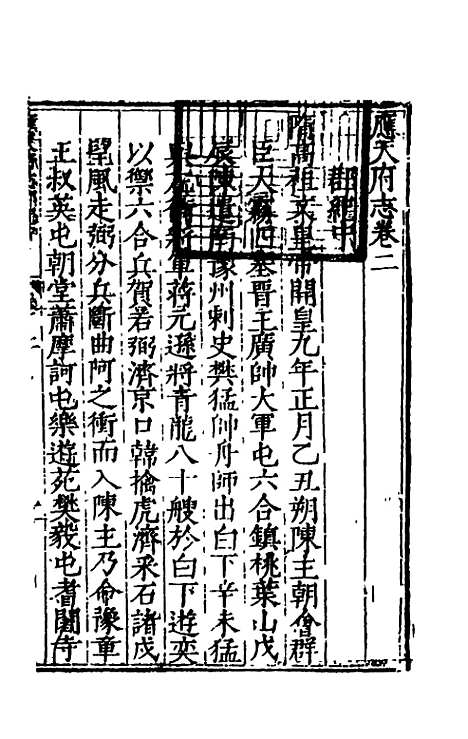 應天府志卷二
郡紀中
隋高祖文皇帝開皇九年正月乙丑朔陳主朝會群
臣大霧四塞晋王廣帥大軍屯六合鎮桃葉山戊
辰陳遣南豫州刺史樊猛帥舟師出白下辛未猛
與左衛將軍蔣元遜將青龍八十艘於白下遊奕
以禦六合兵賀若弼濟京口韓擒虎濟采石諸戍
望風走弼分兵斷曲阿之衝而入陳主乃命豫章
王叔英屯朝堂蕭摩訶屯樂遊苑樊毅屯耆闍寺